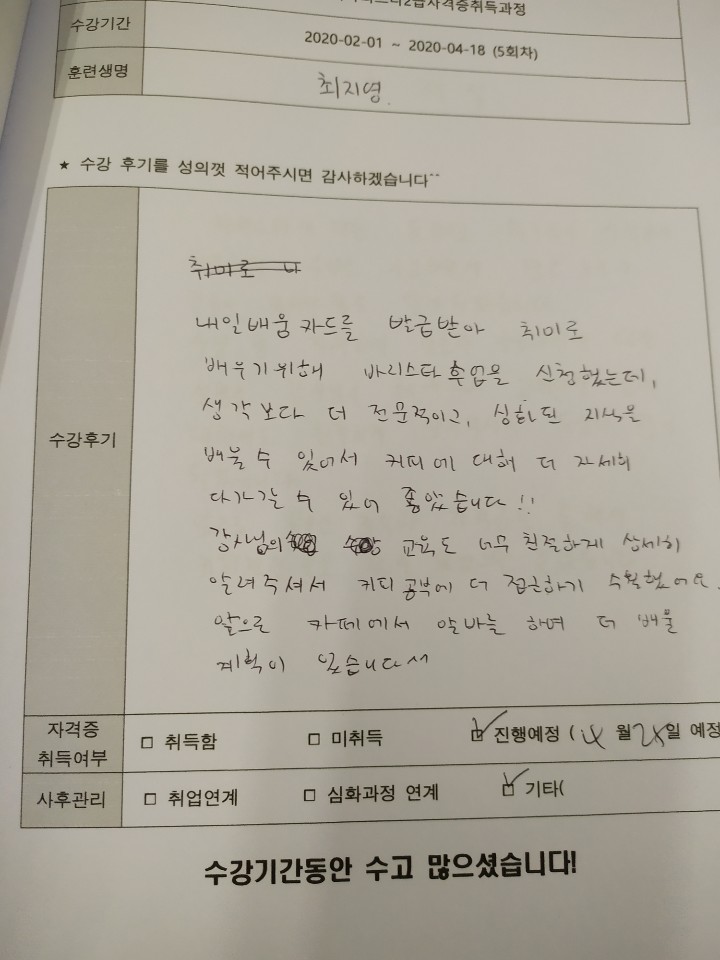 2급자격증취득과정
수강기간 2020-02-01 ~ 2020-04-18 (5회차)
훈련생명 최지영.
★ 수강 후기를 성의껏 적어주시면 감사하겠습니다^^
취미로
내일배움카드를 발급받아 취미로
배우기위해 바리스타 수업을 신청했는데,
생각보다 더 전문적이고, 심화된 지식을
배울 수 있어서 커피에 대해 더 자세히
다가갈 수 있어 좋았습니다!!
수강후기
강사님의 교육도 너무 친절하게 상세히
알려주셔서 커피공부에 더 접근하기 수월했어요.
앞으로 카페에서 알바를 하며 더 배울
계획이 있습니다
자격증 취득여부 □ 취득함 □ 미취득 ☑ 진행예정 ( 월 일 예정
사후관리 □ 취업연계 □ 심화과정 연계 ☑ 기타(
수강기간동안 수고 많으셨습니다!